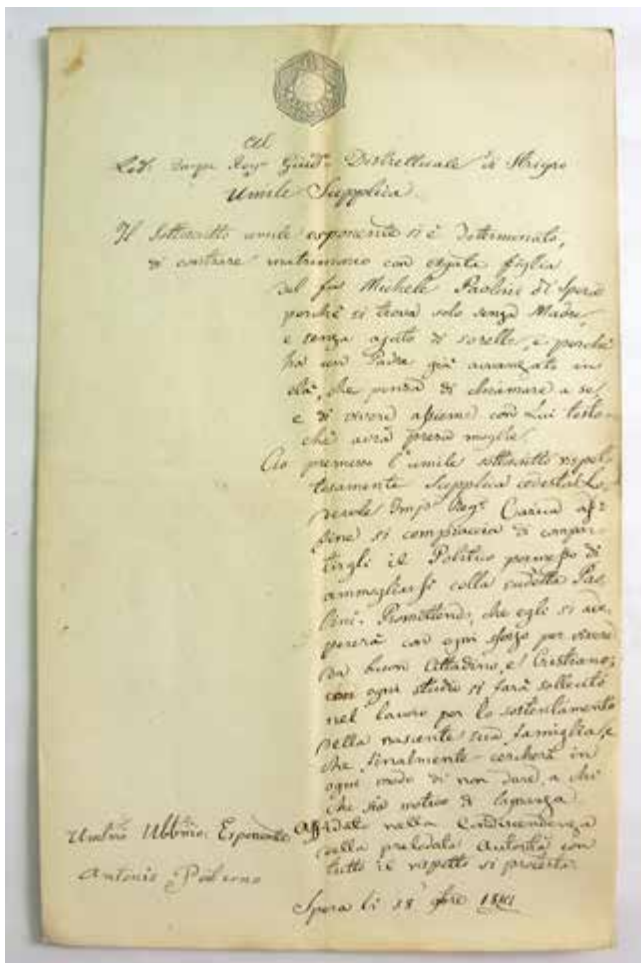 All
Lod. Imp. Reg. Giud. Distrettuale di Strigno
Umile Supplica.
Il Sottoscritto umile esponente si è determinato,
di contrare matrimonio con figlia
del fu Michele Paolini di Spera
perchè si trova solo senza Madre,
e senza ajuto di sorelle, e perchè
ha un Padre già avvanzato in
età, che pensa di chiamare a se,
e di vivere assieme con Lui tosto-
chè avrà presa moglie.
Ciò premesso l'umile sottoscritto rispet-
tosamente supplica codesta Lo-
devole Imp. Reg. Carica af-
fine si compiaccia di compar-
tirgli il Politico permesso di
ammogliarsi colla sudetta Pao-
lini. Promettend, che egli si ado-
pererà con ogni sforzo per vivere
da buon Cittadino, e Cristiano;
con ogni studio si farà sollecito
nel lavoro per lo sostentamento
della nascente sua famiglia, e
che finalmente cercherà in
ogni modo di non dare, a chi
che sia motivo di lagnanza.
Affidato nella Condiscendenza
della prelodata Autorità con
tutto il rispetto si protesta.
Umilmo Ubbmo: Esponente
Antonio
Spera li 18 9bre 1841